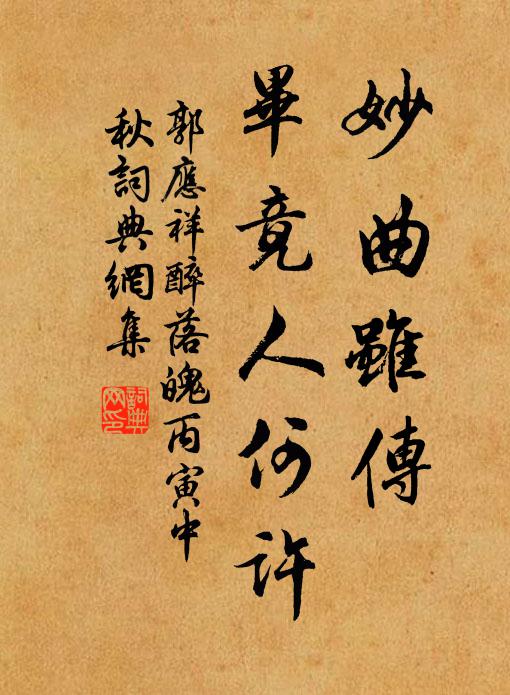 妙曲雖傳
畢竟人何許
郭應祥醉落魄丙寅中
秋詞典網集
詞典
网印